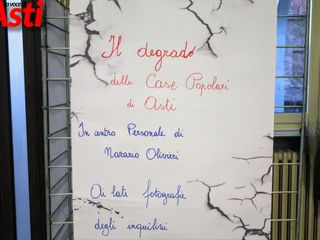 la voce di
Asti
Il degrado
delle Case Popolari
di Asti
In centro Personale di
Nazario Olivieri
Ai lati fotografie
degli inquilini